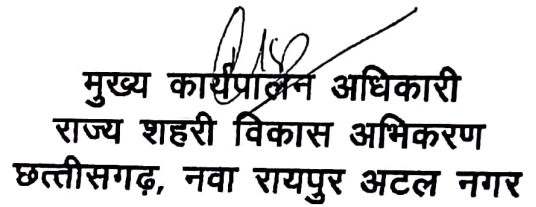 मुख्य कार्यपालन अधिकारी
राज्य शहरी विकास अभिकरण
छत्तीसगढ़, नवा रायपुर अटल नगर